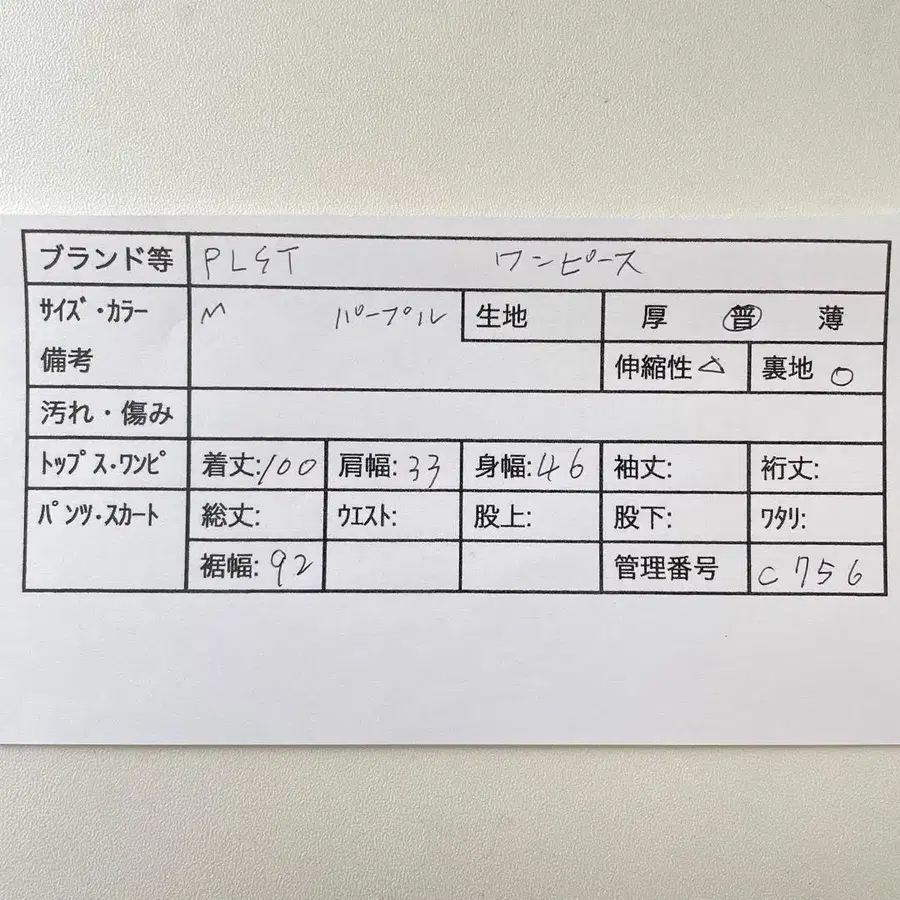 ブランド等 PLST ワンピース
サイズ・カラー M パープル 生地 厚 普 薄
備考 伸縮性 △ 裏地 ○
汚れ・傷み
トップス・ワンピ 着丈:100 肩幅:33 身幅:46 袖丈: 裄丈:
パンツ・スカート 総丈: ウエスト: 股上: 股下: ワタリ:
裾幅:92 管理番号 C756